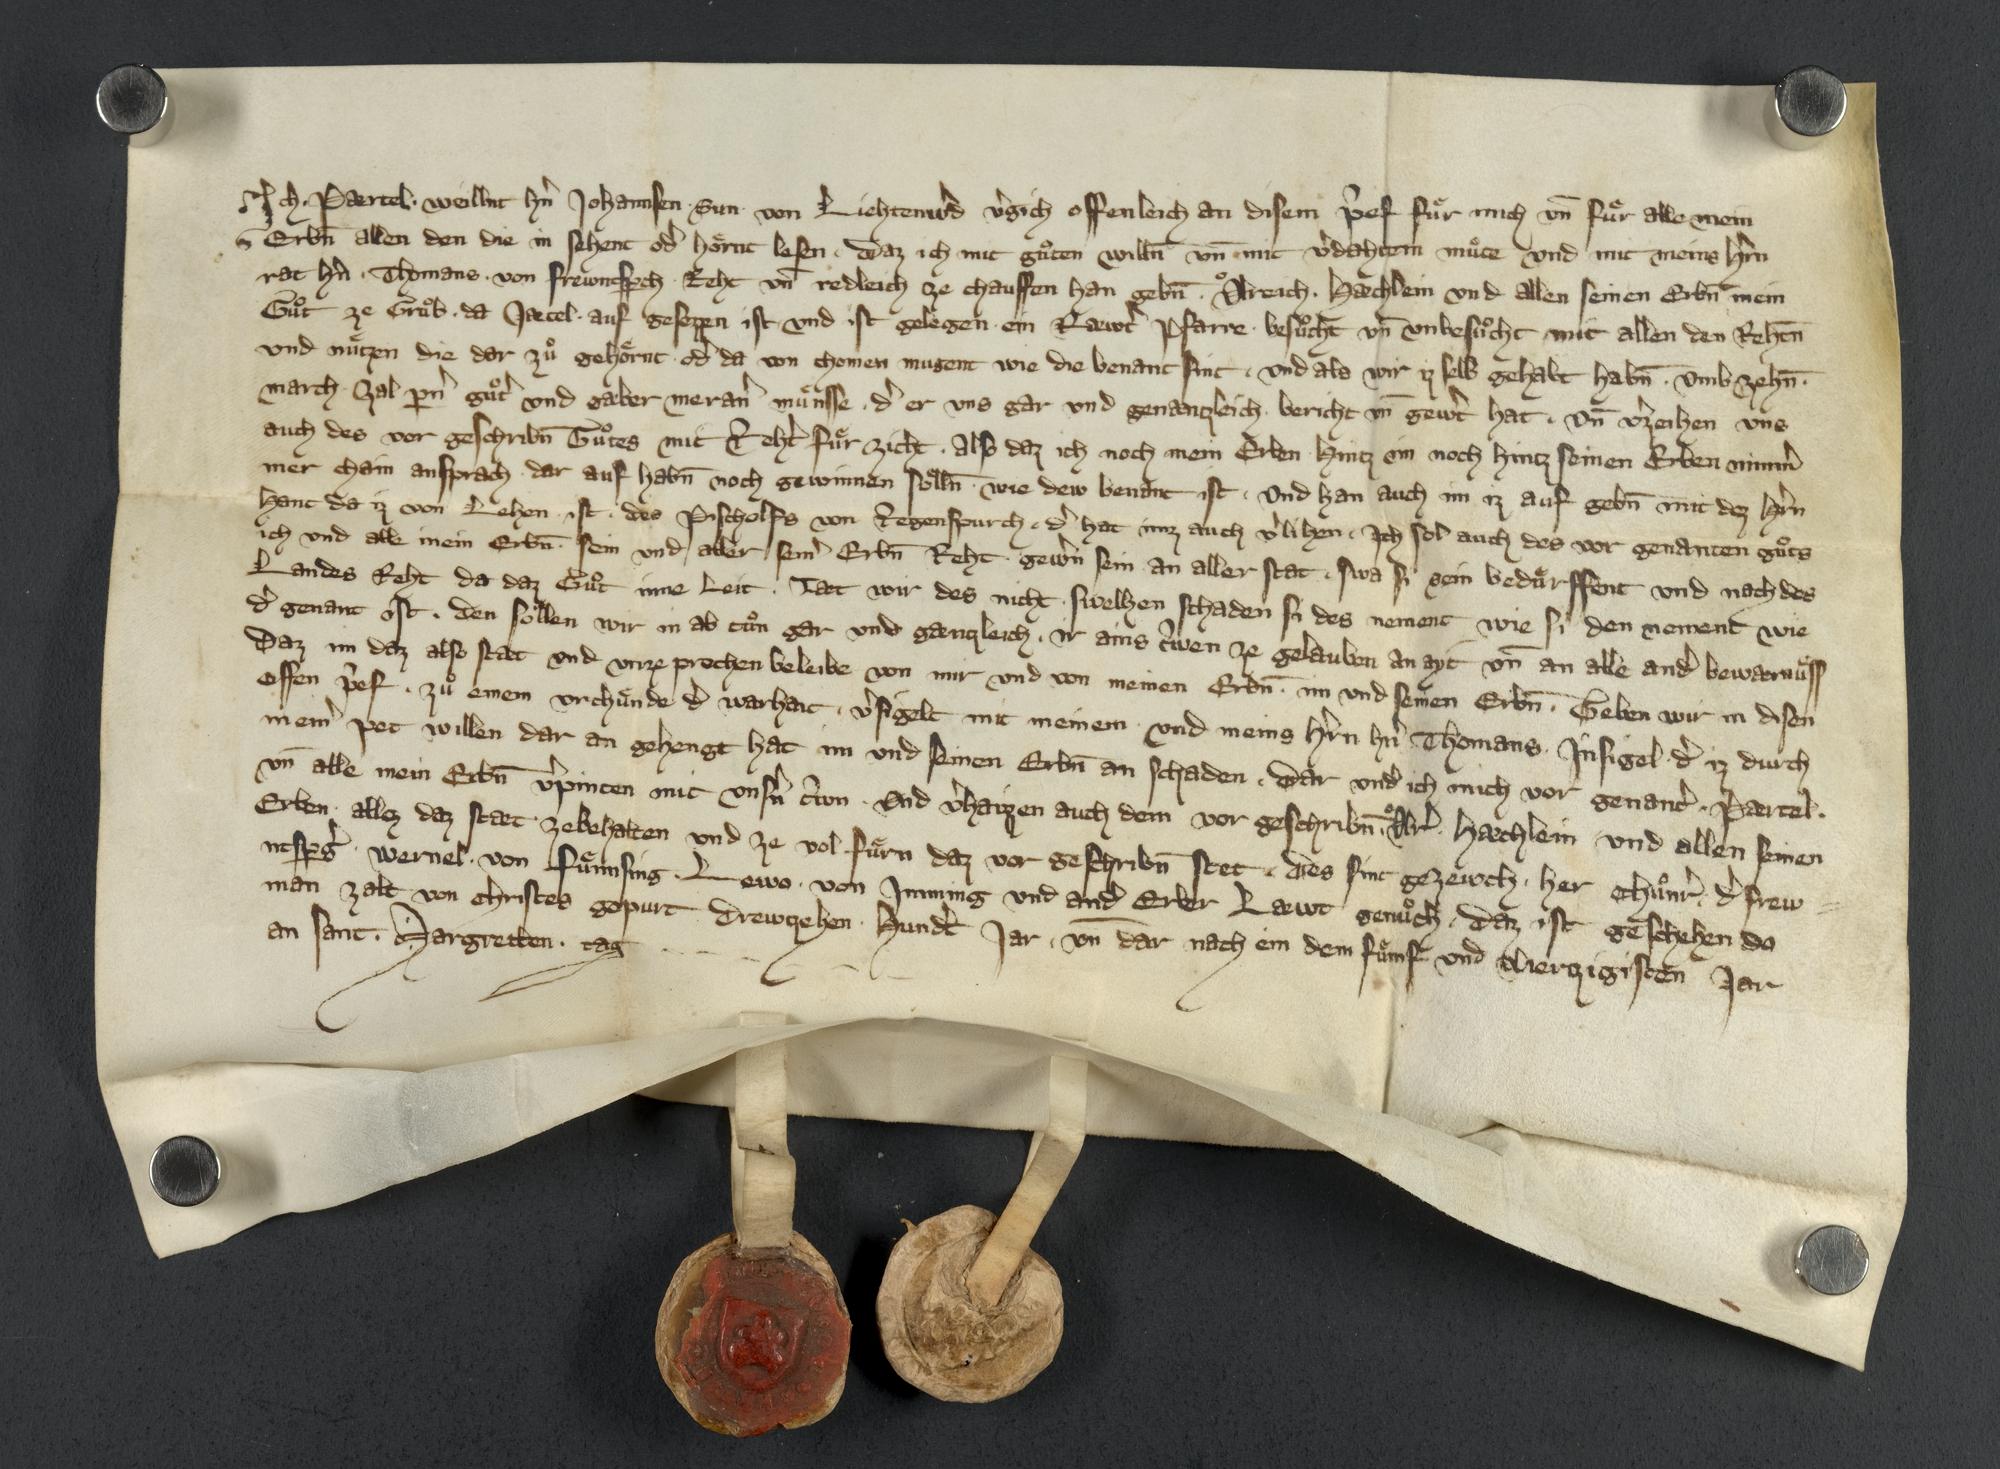 Ich · Paertel · weillnt hn̄ Johannsen · Sun · von Liechtenwͤrd vͤgich offenleich an disem p̄ef fuͤr mich vn̄ fuͤr alle mein
Erbn̄ allen den die in sehent odͤ hoͤrnt lesen · Daz ich mit guͦten willn̄ vn̄ mit vͤdahtem muͦte vnd mit meins hr̄n
rat hn̄ · Thomans · von frewntsperch · Reht vn̄ redleich ze chauffen han gebn̄ · Vͦlreich · Haechlein vnd allen seinen Erbn̄ mein
Guͦt ze Gruͦb · da Jaecel · auf gesezzen ist vnd ist gelegen ein Raewtͤ Pfarre · besuͦcht vn̄ vnbesuͦcht mit allen den Rehtn̄
vnd nuͤtzen die dar zuͦ gehoͤrnt · odͤ da von chomen mugent wie die benant sint · vnd als wir iz selb gehabt habn̄ · vmb zehn̄ ·
march · zal pn̄ guͦtͤ vnd gaeber meranͤ muͤnsse · dͤ er vns gar vnd genantzleich · bericht vn̄ gewͤt hat · vn̄ vͤzeihen vns
auch des vor geschribn̄ Guͦtes mit Rehtͤ fuͤr zicht · also daz ich noch mein Erben hintz im noch hintz seinen Erben nimmͤ
mer chain ansprach · dar auf habn̄ noch gewinnen soͤlln̄ · wie dew benant ist · vnd han auch im iz auf gebn̄ mit dez hr̄n
hant da iz von Lehen ist · des Pischolfs von Regenspurch · dͤ hat imz auch vͤlihen · Ich sol auch des vor genanten guͦts
ich vnd alle mein Erbn̄ · sein vnd aller seinͤ Erbn̄ Reht · gewͤn sein an aller stat · swa si sein beduͤrffent vnd nach des
Landes Reht da daz Guͦt inne leit · Taet wir des nicht · swelhen schaden si des nement wie si den nement wie
dͤ genant ist · den soͤllen wir in ab tuͦn gar vnd gaentzleich · ir ains trͤwen ze gelauben an ayt vn̄ an alle andͤ bewaernuͤss
Daz im daz also staet vnd vnzeprochen beleibe von mir vnd von meinen Erbn̄ · im vnd seinen Erbn̄ · Geben wir in disen
offen p̄ef · zuͦ einem vrchuͤnde dͤ warhait · vͤsigelt mit meinem vnd meins hr̄n hn̄ Thomans · Insigel · dͤ iz durch
meinͤ pet willen dar an gehengt hat im vnd seinen Erbn̄ an schaden · Dar vndͤ ich mich vor genantͤ · Paertel ·
vn̄ alle mein Erbn̄ vͤpinten mit vnsn̄ trͤwn · vnd vͤhaizzen auch dem vor geschribn̄ · Vͦlrͤ · Haechlein vnd allen seinen
Erben · allez daz staet · zebehalten vnd ze vol fuͤrn daz vor geschribn̄ stet · Des sint gezewch · her Chuͦnrͤ · dͤ frew
ntspgͤ · wernel · von fuͤmfing · Lewo · von Imming vnd andͤ Erber Laewt genuͦch · Daz ist geschehen do
man zalt von christes gepurt drewzehen · hundͤt Jar · vn̄ dar nach ein dem fuͤmf vnd viertzigisten Jar
an sant · Margretten · tag